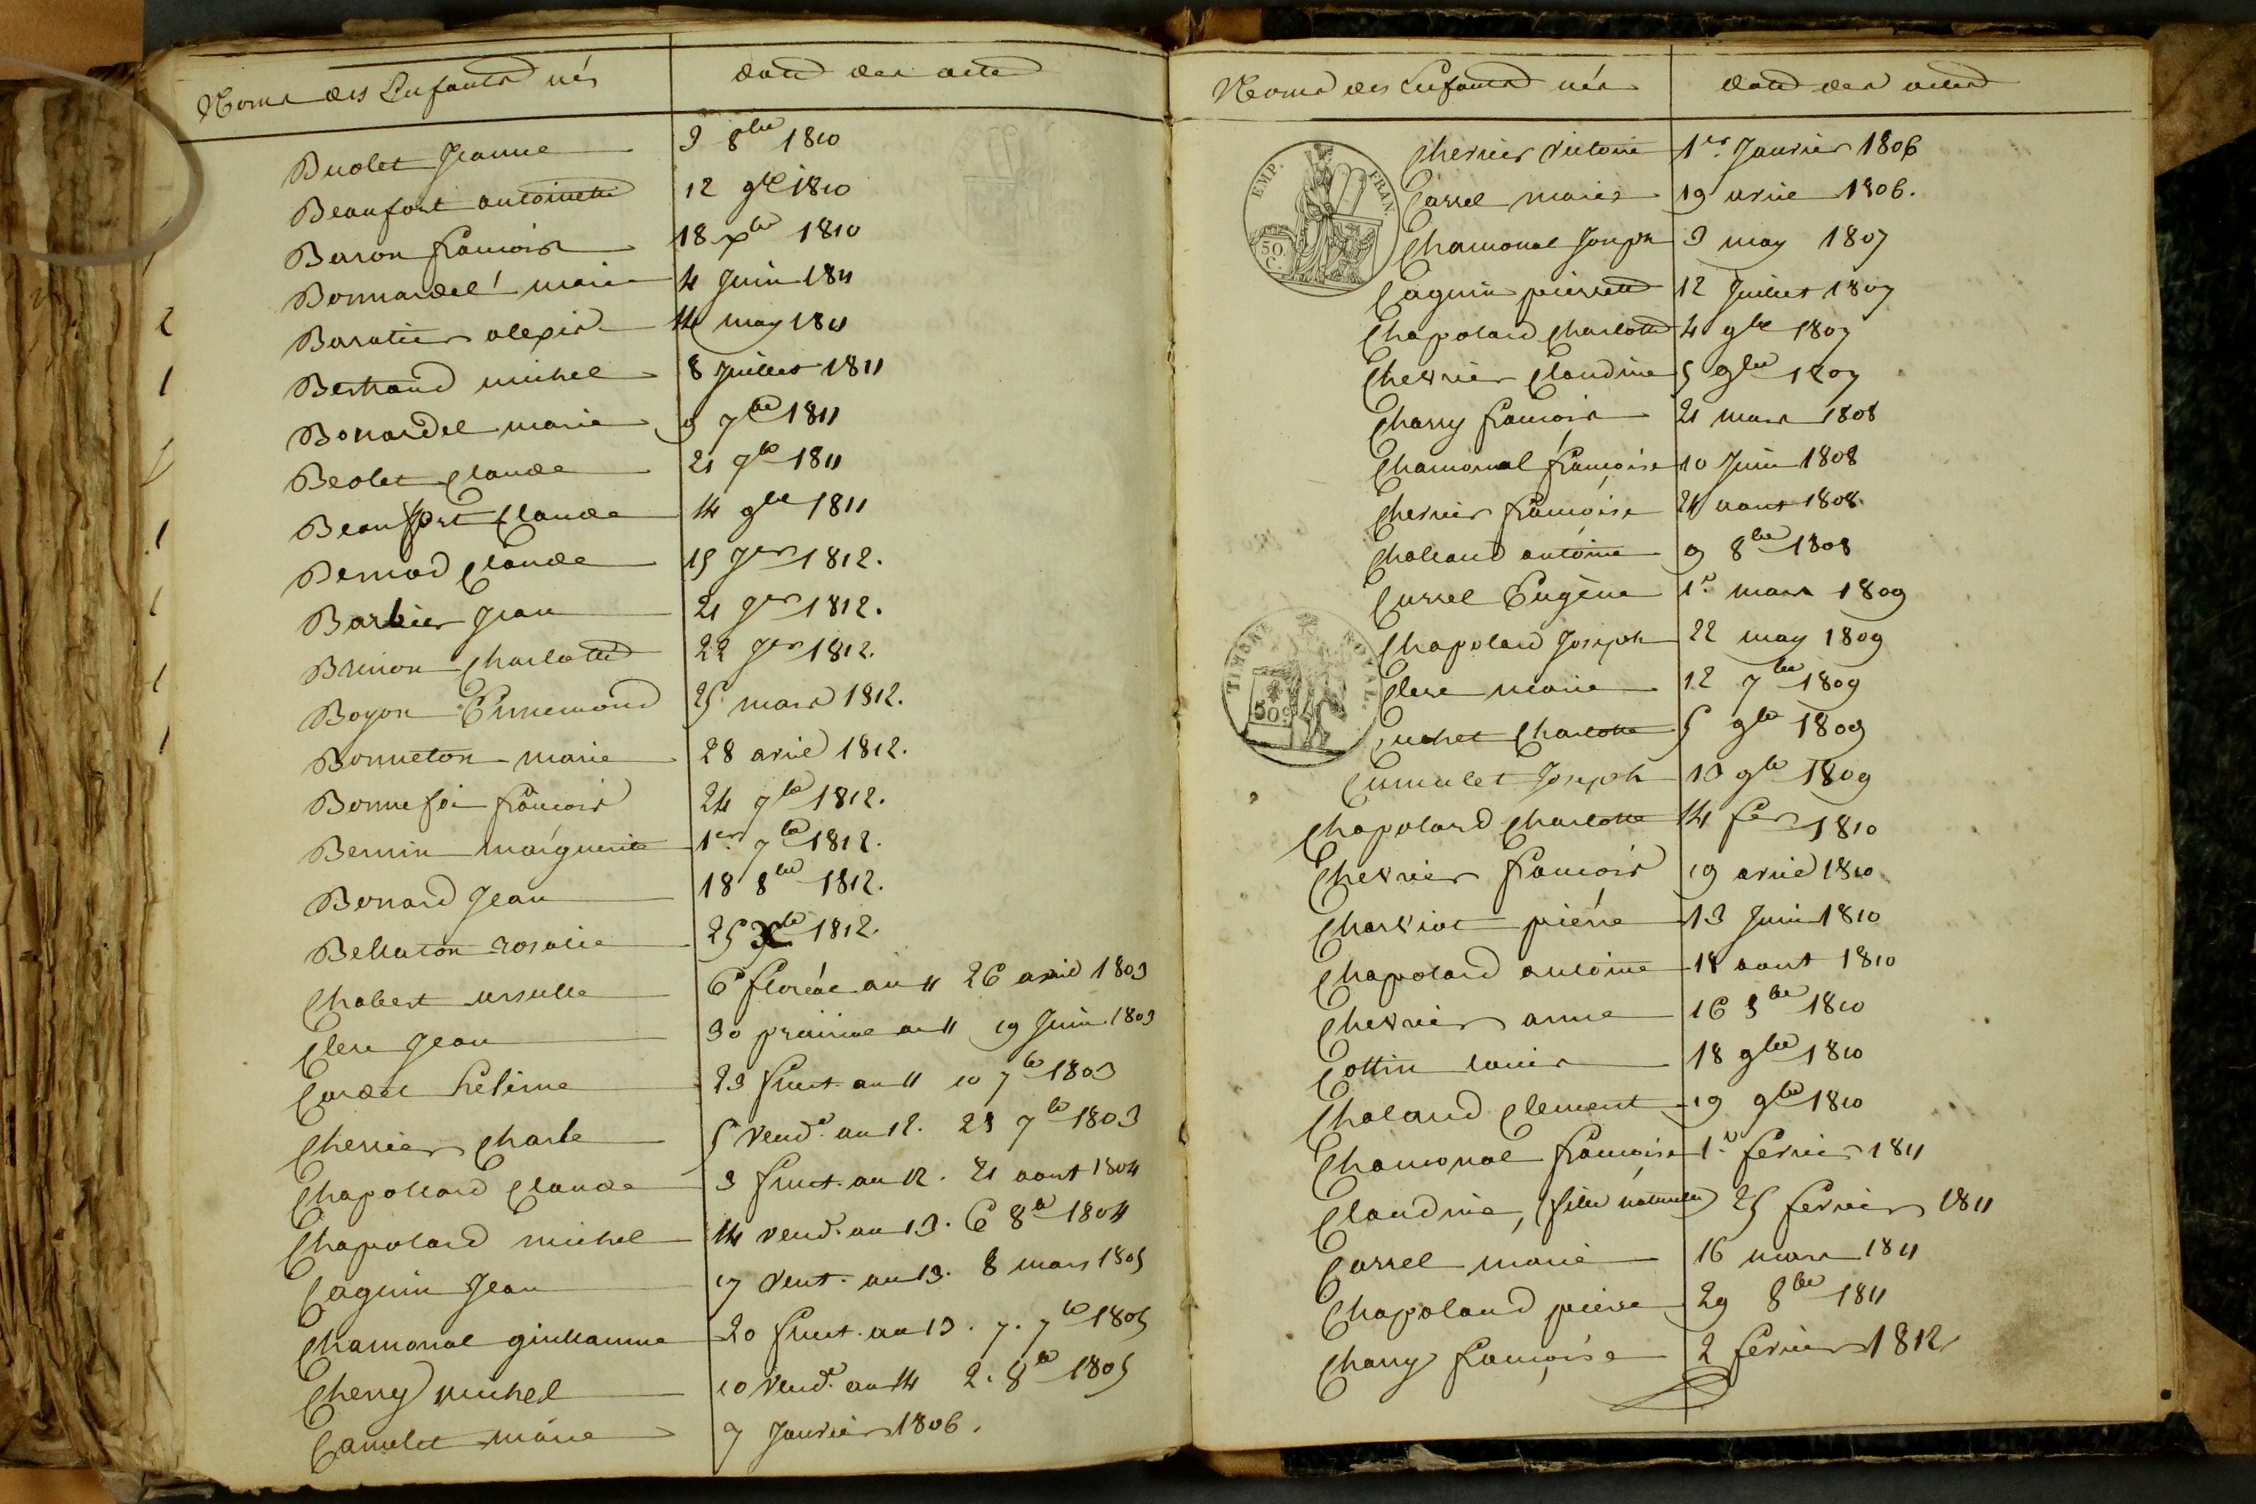 Noms des Enfants nés date des actes
Buolet Jeanne 3 8bre 1810
Beaufort antoinette 12 9bre 1810
Baron francois 18 xbre 1810
Bonnardel marie 4 Juin 1811
Baratier alexis 14 may 1811
Bertrand michel 8 Juillet 1811
Bonardel marie 9 7bre 1811
Beolet Claude 21 7bre 1811
Beaufort Claude 14 9bre 1811
Bernard Claude 15 Jer 1812.
Barbier Jean 21 Jer 1812.
Brinon Charlotte 22 Jer 1812.
Boyon Ennemond 25 mars 1812.
Bonneton marie 28 avril 1812.
Bonnefoi francois 24 7bre 1812.
Bernin marguerite 1er 7bre 1812.
Bonard Jean 18 8bre 1812.
Bellaton rosalie 25 xbre 1812.
Chabert ursulle 6 floréal an 11 26 avril 1803
Clere Jean 30 prairial an 11 19 Juin 1803
Cardet helinne 23 fruct. an 11 10 7bre 1803
Chevrier Charle 5 vend.e an 12. 28 7bre 1803
Chapollard Claude 3 fruct. an 12. 21 aout 1804
Chapolard michel 14 vend. an 13. 6 8bre 1804
Caguin Jean 17 vent. an 13. 8 mars 1805
Chamonal guillaume 20 fruct. an 13. 7. 7bre 1805
Cherry michel 10 vend.e an 14 2. 8bre 1805
Camulet marie 7 Janvier 1806.
Noms des Enfants nés date des actes
EMP. FRAN.
50. C.
Chevrier victoire 1er Janvier 1806
Carrel marie 19 avril 1806.
Chamonal Joseph 3 may 1807
Caguin pierrette 12 Juillet 1807
Chapolard Charlotte 4 9bre 1807
Chevrier Claudine 5 9bre 1807
Charry francois 21 mars 1808
Chamonal francoise 10 Juin 1808
Chevrier francoise 21 aout 1808
Chaland antoine 9 8bre 1808
Currel Eugène 1er mars 1809
TIMBRE ROYAL.
50c
Chapolard Joseph 22 may 1809
Clere marie 12 7bre 1809
Cuchet Charlotte 5 9bre 1809
Cumulet Joseph 10 9bre 1809
Chapolard Charlotte 14 fer 1810
Chevrier francois 19 avril 1810
Charviot pierre 13 Juin 1810
Chapolard antoine 18 aout 1810
Chevrier anne 16 8bre 1810
Cottin louis 18 9bre 1810
Chaland Clement 19 9bre 1810
Chamonal francoise 1er fevrier 1811
Claudine, (fille naturelle) 25 fevrier 1811
Carrel marie 16 mars 1811
Chapoland pierre 29 8bre 1811
Charry francoise 2 fevrier 1812